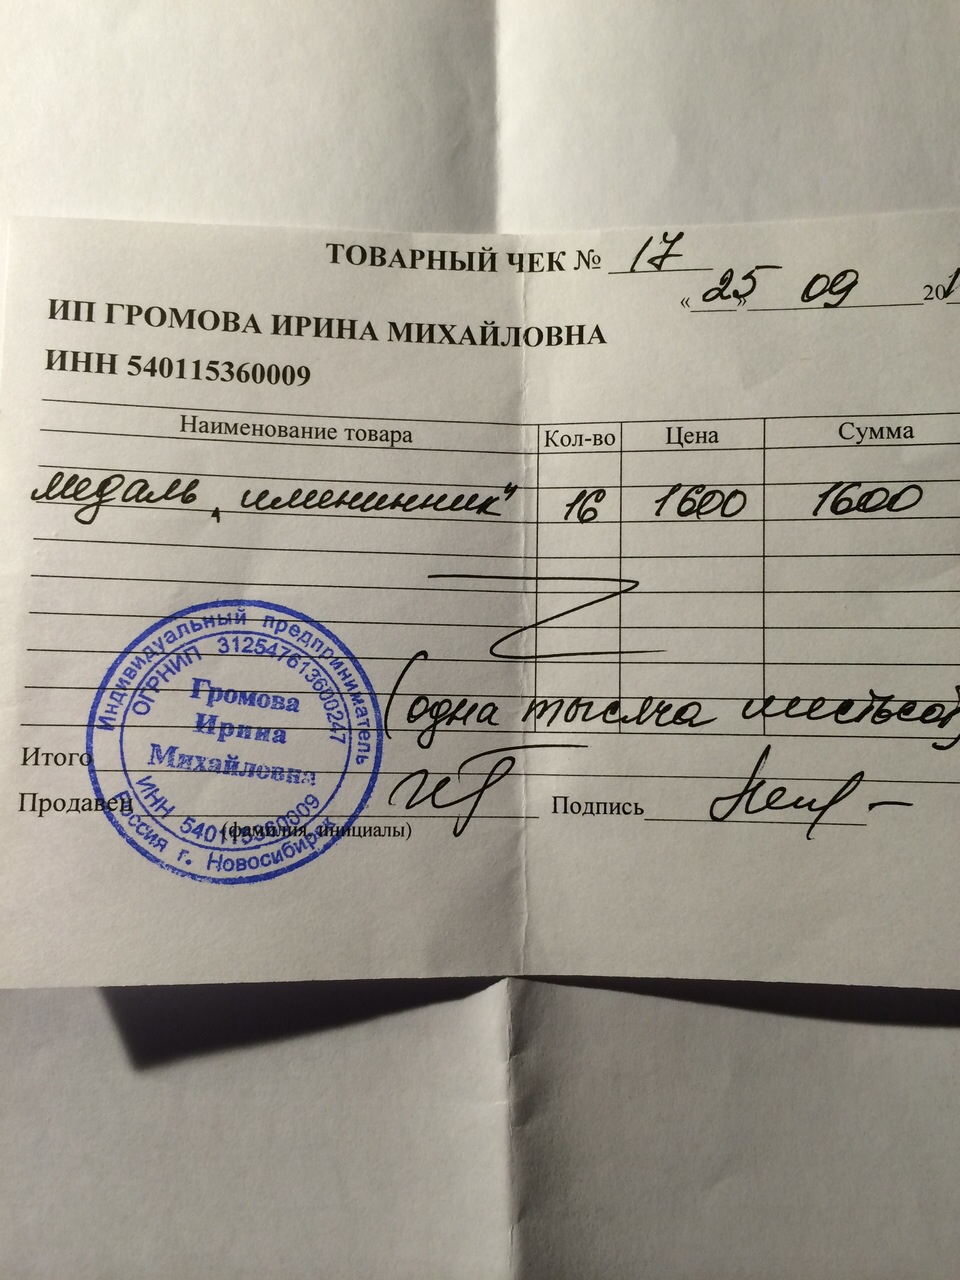 ТОВАРНЫЙ ЧЕК № 17
« 25 » 09 201
ИП ГРОМОВА ИРИНА МИХАЙЛОВНА
ИНН 540115360009
Наименование товара Кол-во Цена Сумма
медаль „именинник" 16 1600 1600
(одна тысяча шестьсот)
Итого
Продавец Подпись
(фамилия, инициалы)
Индивидуальный предприниматель
ОГРНИП 312547613600247
Громова
Ирина
Михайловна
ИНН 540115360009
Россия г. Новосибирск